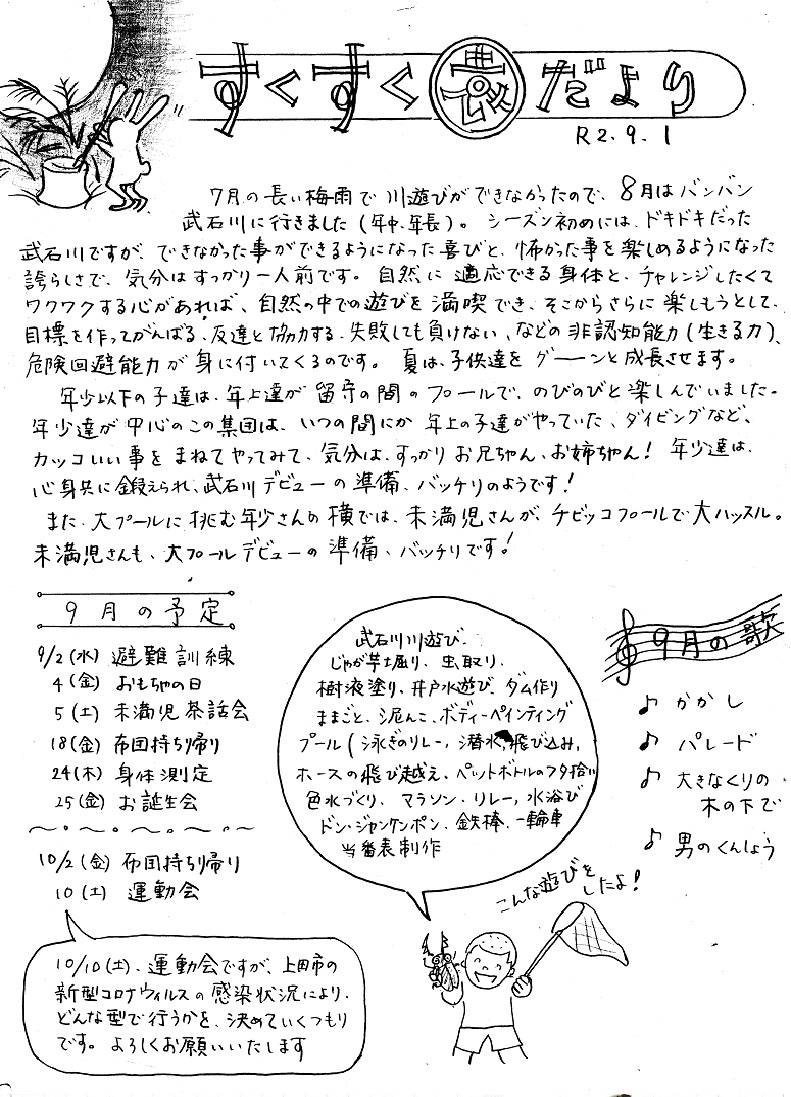 すくすくだより
R2.9.1
7月の長い梅雨で川遊びができなかったので、8月はバンバン
武石川に行きました(年中、年長)。シーズン初めには、ドキドキだった
武石川ですが、できなかった事ができるようになった喜びと、怖かった事を楽しめるようになった
誇らしさで、気分はすっかり一人前です。自然に適応できる身体と、チャレンジしたくて
ワクワクする心があれば、自然の中での遊びを満喫でき、そこからさらに楽しもうとして、
目標を作ってがんばる、友達と協力する、失敗しても負けない、などの非認知能力(生きる力)、
危険回避能力が身に付いてくるのです。夏は、子供達をグーーンと成長させます。
年少以下の子達は、年上達が留守の間のプールで、のびのびと楽しんでいました。
年少達が中心のこの集団は、いつの間にか年上の子達がやっていた、ダイビングなど、
カッコいい事をまねてやってみて、気分は、すっかりお兄ちゃん、お姉ちゃん!年少達は、
心身共に鍛えられ、武石川デビューの準備、バッチリのようです!
また、大プールに挑む年少さんの横では、未満児さんが、チビッコプールで大ハッスル。
未満児さんも、大プールデビューの準備、バッチリです!
9月の予定
9/2(水) 避難訓練
4(金) おもちゃの日
5(土) 未満児茶話会
18(金) 布団持ち帰り
24(木) 身体測定
25(金) お誕生会
10/2(金) 布団持ち帰り
10(土) 運動会
10/10(土)、運動会ですが、上田市の
新型コロナウィルスの感染状況により、
どんな型で行うかを、決めていくつもり
です。よろしくお願いいたします
武石川川遊び、
じゃが芋堀り、虫取り、
樹液塗り、井戸水遊び、ダム作り
ままごと、泥んこ、ボディーペインティング
プール(泳ぎのリレー、潜水、飛び込み、
ホースの飛び越え、ペットボトルのフタ拾い
色水づくり、マラソン、リレー、水浴び
ドン・ジャンケンポン、鉄棒、一輪車
当番表制作
こんな遊びを
したよ!
9月の歌
♪ かかし
♪ パレード
♪ 大きなくりの
木の下で
♪ 男のくんしょう